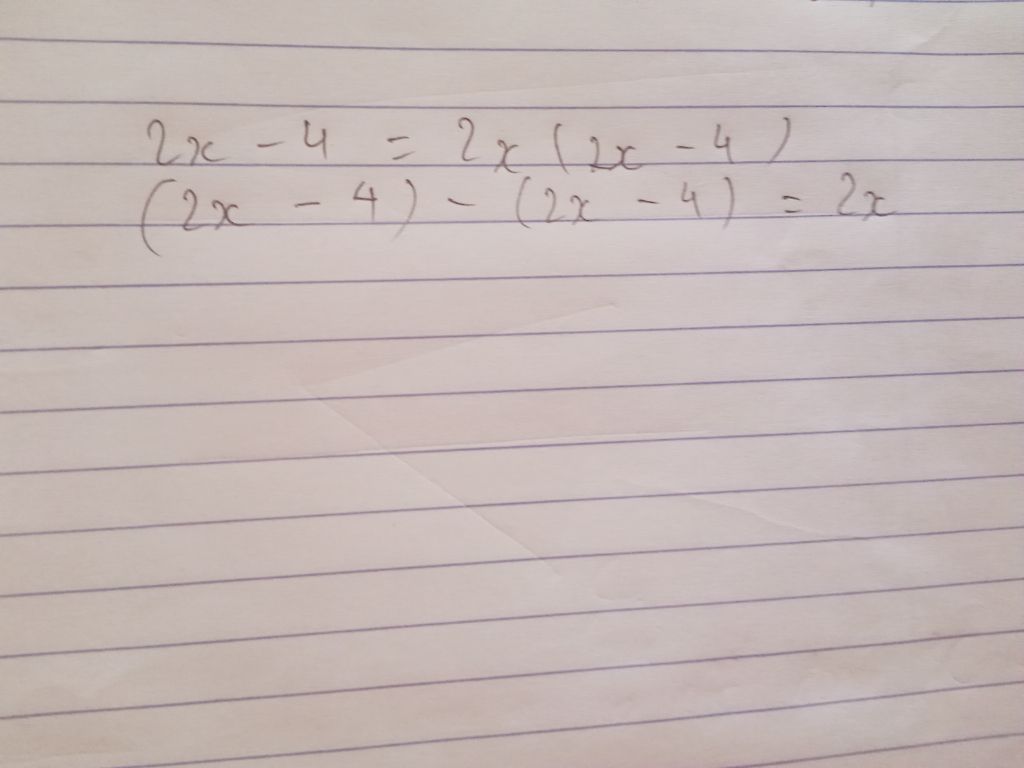 2x - 4 = 2x (2x - 4)
(2x - 4) - (2x - 4) = 2x